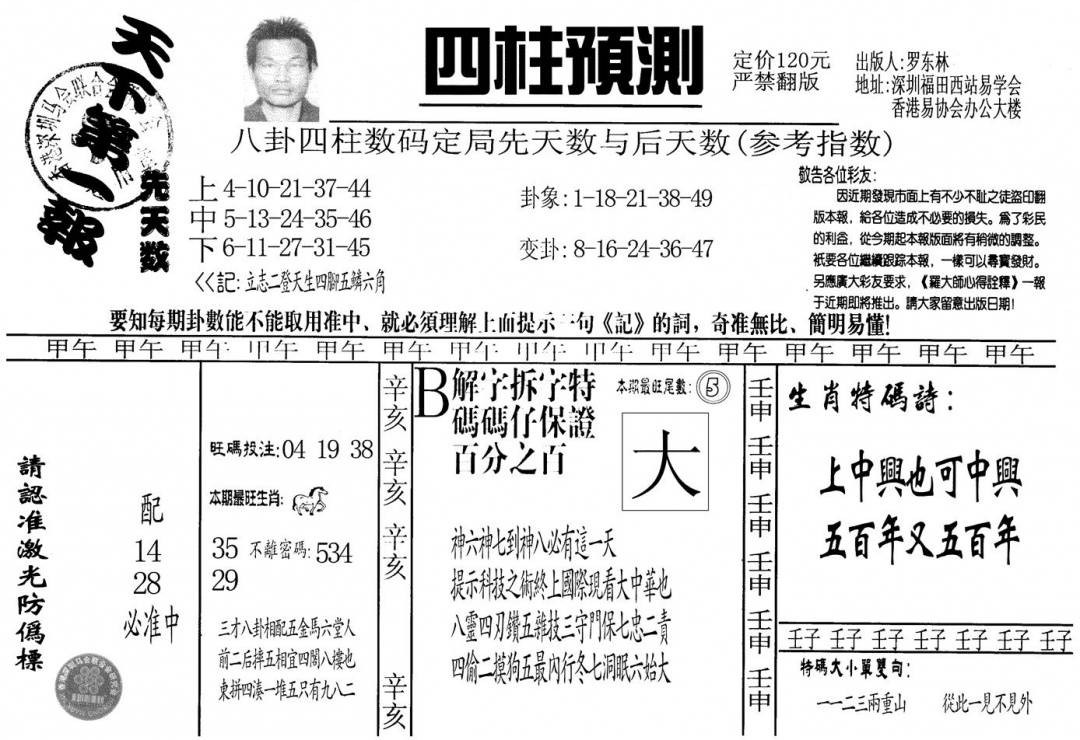 天下第一報
四柱預測
定价120元
严禁翻版
出版人:罗东林
地址:深圳福田西站易学会
香港易协会办公大楼
八卦四柱数码定局先天数与后天数(参考指数)
先天数
上4-10-21-37-44
中5-13-24-35-46
下6-11-27-31-45
<<記:立志二登天生四腳五鱗六角
卦象:1-18-21-38-49
变卦:8-16-24-36-47
敬告各位彩友:
因近期發現市面上有不少不耻之徒盜印翻
版本報,給各位造成不必要的損失。爲了彩民
的利益,從今期起本報版面將有稍微的調整。
衹要各位繼續跟踪本報,一樣可以尋寶發財。
另應廣大彩友要求,《羅大師心得詮釋》一報
于近期即將推出。請大家留意出版日期!
要知每期卦數能不能取用准中、就必須理解上面提示一句《記》的詞,奇准無比、簡明易懂!
甲午 甲午 甲午 甲午 甲午 甲午 甲午 甲午 甲午 甲午 甲午 甲午 甲午 甲午 甲午
請認准激光防僞標
配
14
28
必准中
旺碼投注:04 19 38
本期最旺生肖:
35 不離密碼:534
29
三才八卦相配五金馬六堂人
前二后摔五相宜四閣八樓也
東拼四湊一堆五只有九八二
辛亥 辛亥 辛亥 辛亥
B解字拆字特
碼碼仔保證
百分之百
本期最旺尾數:5
大
神六神七到神八必有這一天
提示科技之術終上國際現看大中華也
八靈四刃鑽五雜技三守門保七忠二責
四偷二摸狗五最內行冬七洞眠六始大
壬申 壬申 壬申 壬申 壬申 壬申
生肖特碼詩:
上中興也可中興
五百年又五百年
壬子 壬子 壬子 壬子 壬子 壬子 壬子
特碼大小單雙句:
一一二三兩重山 從此一見不見外